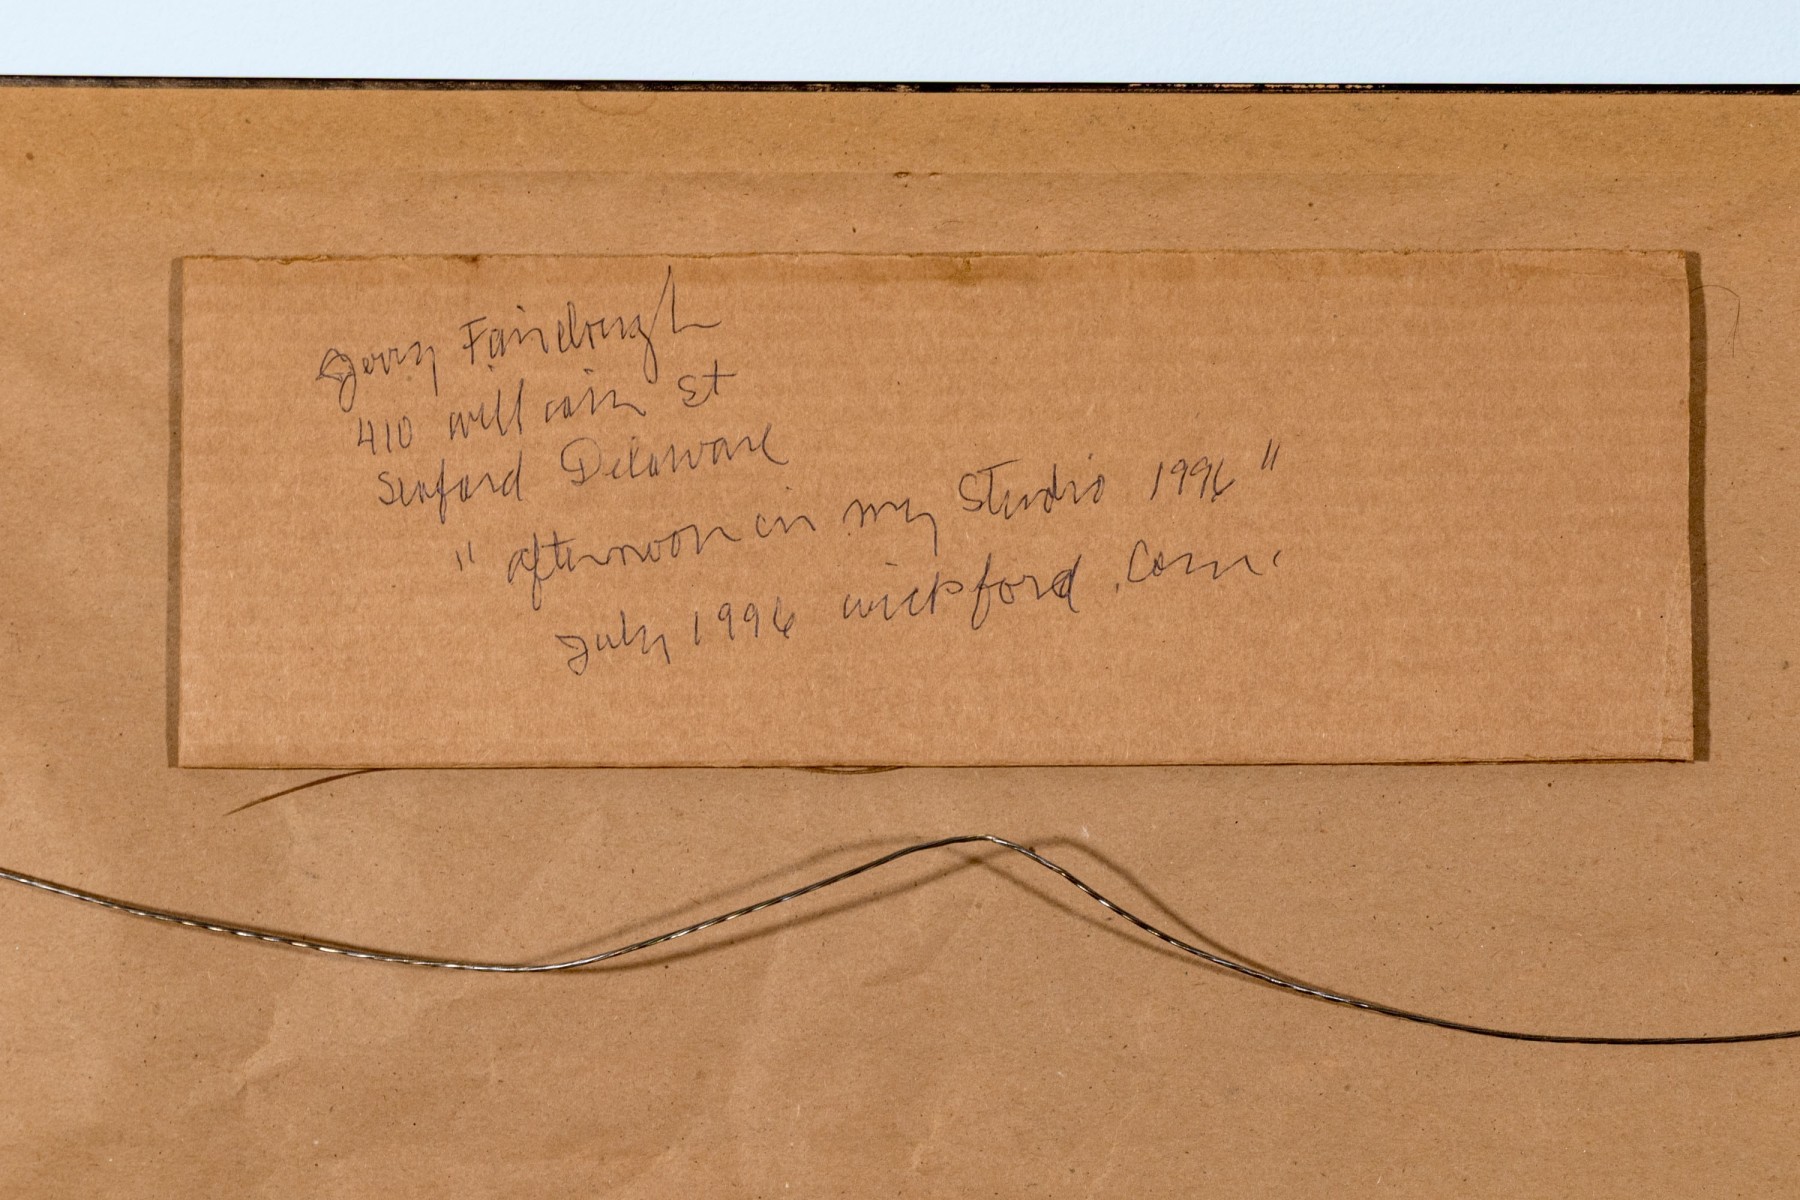 Jerry Fairclough
410 william St
Seaford Delaware
" afternoon in my Studio 1996 "
July 1996 wickford . Conn.